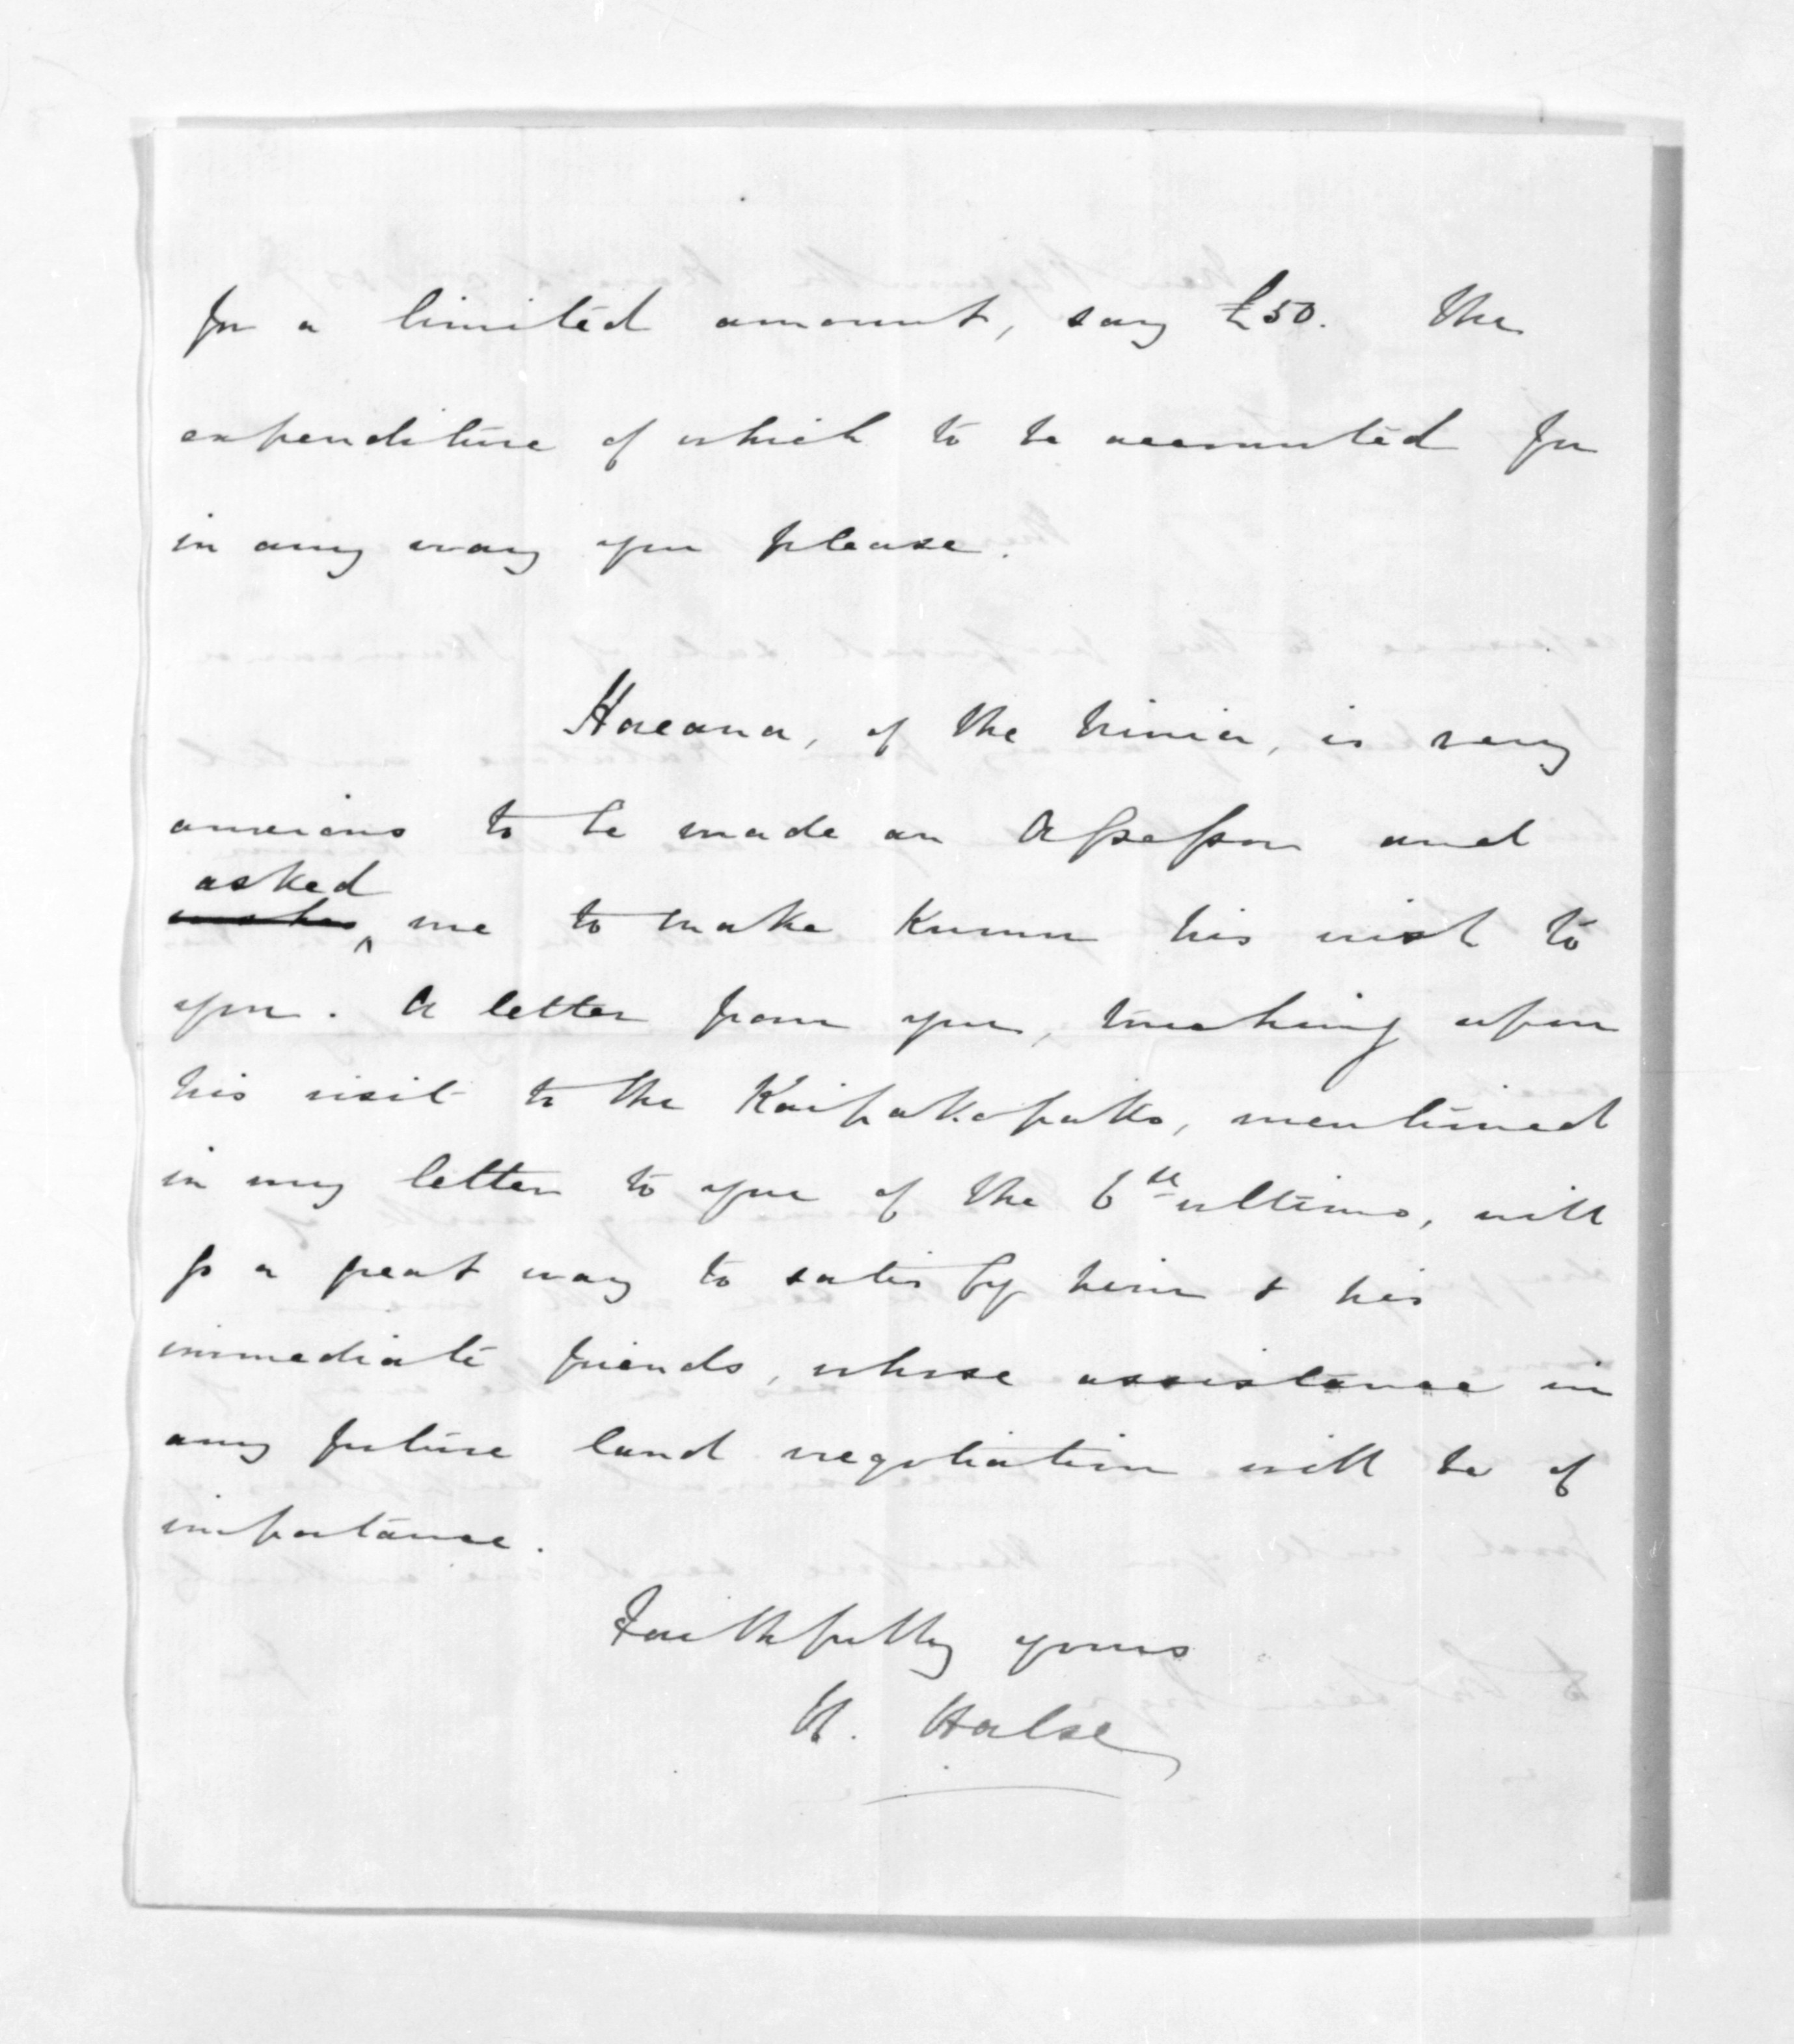 for a limited amount, say £50. The
expenditure of which to be accounted for
in any way you please.
Haeana, of the Ninia, is very
anxious to be made an Assessor and
asked
wishes me to make known his wish to
you. A letter from you, touching upon
his visit to the Kaipakopako, mentioned
in my letter to you of the 6th ultimo, will
go a great way to satisfy him & his
immediate friends, whose assistance in
any future land negotiation will be of
importance.
Faithfully yours
H. Halse